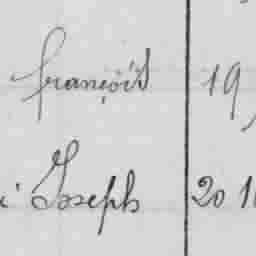 françois 19
Joseph 20